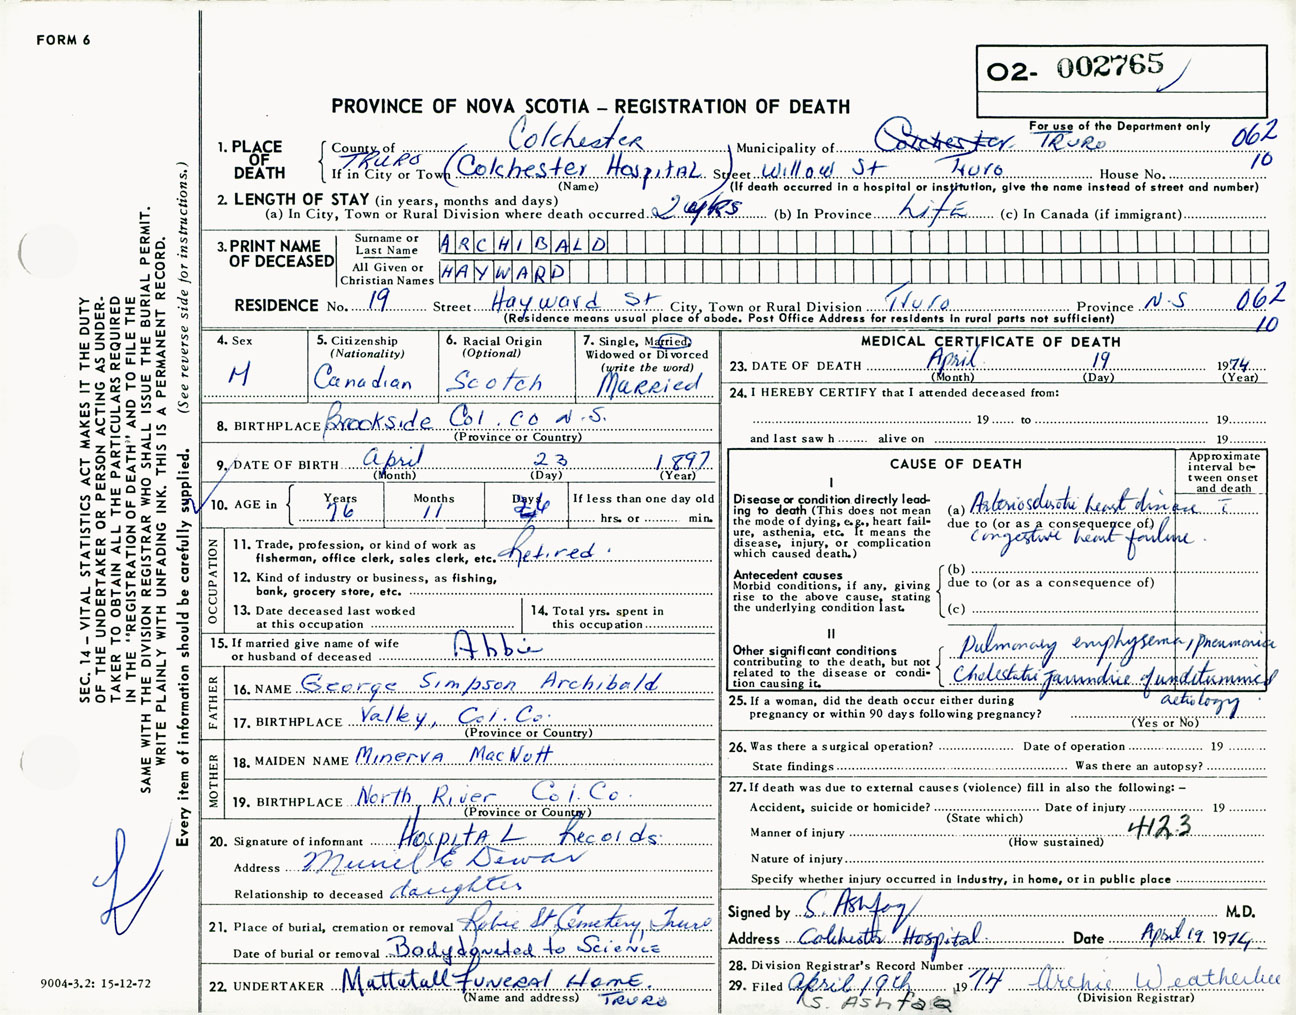 FORM 6
O2- 002765
PROVINCE OF NOVA SCOTIA – REGISTRATION OF DEATH
For use of the Department only
062
10
1. PLACE OF DEATH
County of Colchester Municipality of Colchester TRURO
If in City or Town TRURO (Colchester Hospital) Street Willow St Truro House No.
(Name) (If death occurred in a hospital or institution, give the name instead of street and number)
2. LENGTH OF STAY (in years, months and days)
(a) In City, Town or Rural Division where death occurred 2 yrs (b) In Province LIFE (c) In Canada (if immigrant)
3. PRINT NAME OF DECEASED
Surname or Last Name ARCHIBALD
All Given or Christian Names HAYWARD
RESIDENCE No. 19 Street Hayward St City, Town or Rural Division Truro Province N.S 062
10
(Residence means usual place of abode. Post Office Address for residents in rural parts not sufficient)
4. Sex
M
5. Citizenship
(Nationality)
Canadian
6. Racial Origin
(Optional)
Scotch
7. Single, Married,
Widowed or Divorced
(write the word)
Married
8. BIRTHPLACE Brookside Col. Co N.S.
(Province or Country)
9. DATE OF BIRTH April 23 1897
(Month) (Day) (Year)
10. AGE in
Years Months Days If less than one day old
76 11 26 hrs. or min.
OCCUPATION
11. Trade, profession, or kind of work as
fisherman, office clerk, sales clerk, etc. Retired.
12. Kind of industry or business, as fishing,
bank, grocery store, etc.
13. Date deceased last worked
at this occupation
14. Total yrs. spent in
this occupation
15. If married give name of wife
or husband of deceased Abbie
FATHER
16. NAME George Simpson Archibald
17. BIRTHPLACE Valley, Col. Co.
(Province or Country)
MOTHER
18. MAIDEN NAME Minerva MacNutt
19. BIRTHPLACE North River Col. Co.
(Province or Country)
20. Signature of informant Hospital Records.
Address Muriel E Dewar
Relationship to deceased daughter
21. Place of burial, cremation or removal Robie St Cemetery, Truro
Date of burial or removal Body donated to Science
22. UNDERTAKER Mattatall Funeral Home.
(Name and address) TRURO
MEDICAL CERTIFICATE OF DEATH
23. DATE OF DEATH April 19 1974
(Month) (Day) (Year)
24. I HEREBY CERTIFY that I attended deceased from:
19 to 19
and last saw h alive on 19
CAUSE OF DEATH
Approximate
interval be-
tween onset
and death
I
Disease or condition directly lead-
ing to death (This does not mean
the mode of dying, e.g., heart fail-
ure, asthenia, etc. It means the
disease, injury, or complication
which caused death.)
(a) Arteriosclerotic heart disease c̄
due to (or as a consequence of)
Congestive heart failure.
Antecedent causes
Morbid conditions, if any, giving
rise to the above cause, stating
the underlying condition last.
(b)
due to (or as a consequence of)
(c)
II
Other significant conditions
contributing to the death, but not
related to the disease or condi-
tion causing it.
Pulmonary emphysema, pneumonia
Cholestatic Jaundice of undetermined
aetiology
25. If a woman, did the death occur either during
pregnancy or within 90 days following pregnancy?
(Yes or No)
26. Was there a surgical operation? Date of operation 19
State findings Was there an autopsy?
27. If death was due to external causes (violence) fill in also the following: –
Accident, suicide or homicide? Date of injury 19
(State which)
Manner of injury 4123
(How sustained)
Nature of injury
Specify whether injury occurred in industry, in home, or in public place
Signed by S. Ashfaq M.D.
Address Colchester Hospital. Date April 19 1974
28. Division Registrar's Record Number
29. Filed April 19th 1974 Archie Weatherbee
(Division Registrar)
(S. ASHFAQ
SEC. 14 – VITAL STATISTICS ACT MAKES IT THE DUTY
OF THE UNDERTAKER OR PERSON ACTING AS UNDER-
TAKER TO OBTAIN ALL THE PARTICULARS REQUIRED
IN THE "REGISTRATION OF DEATH" AND TO FILE THE
SAME WITH THE DIVISION REGISTRAR WHO SHALL ISSUE THE BURIAL PERMIT.
WRITE PLAINLY WITH UNFADING INK. THIS IS A PERMANENT RECORD.
Every item of information should be carefully supplied. (See reverse side for instructions.)
9004-3.2: 15-12-72